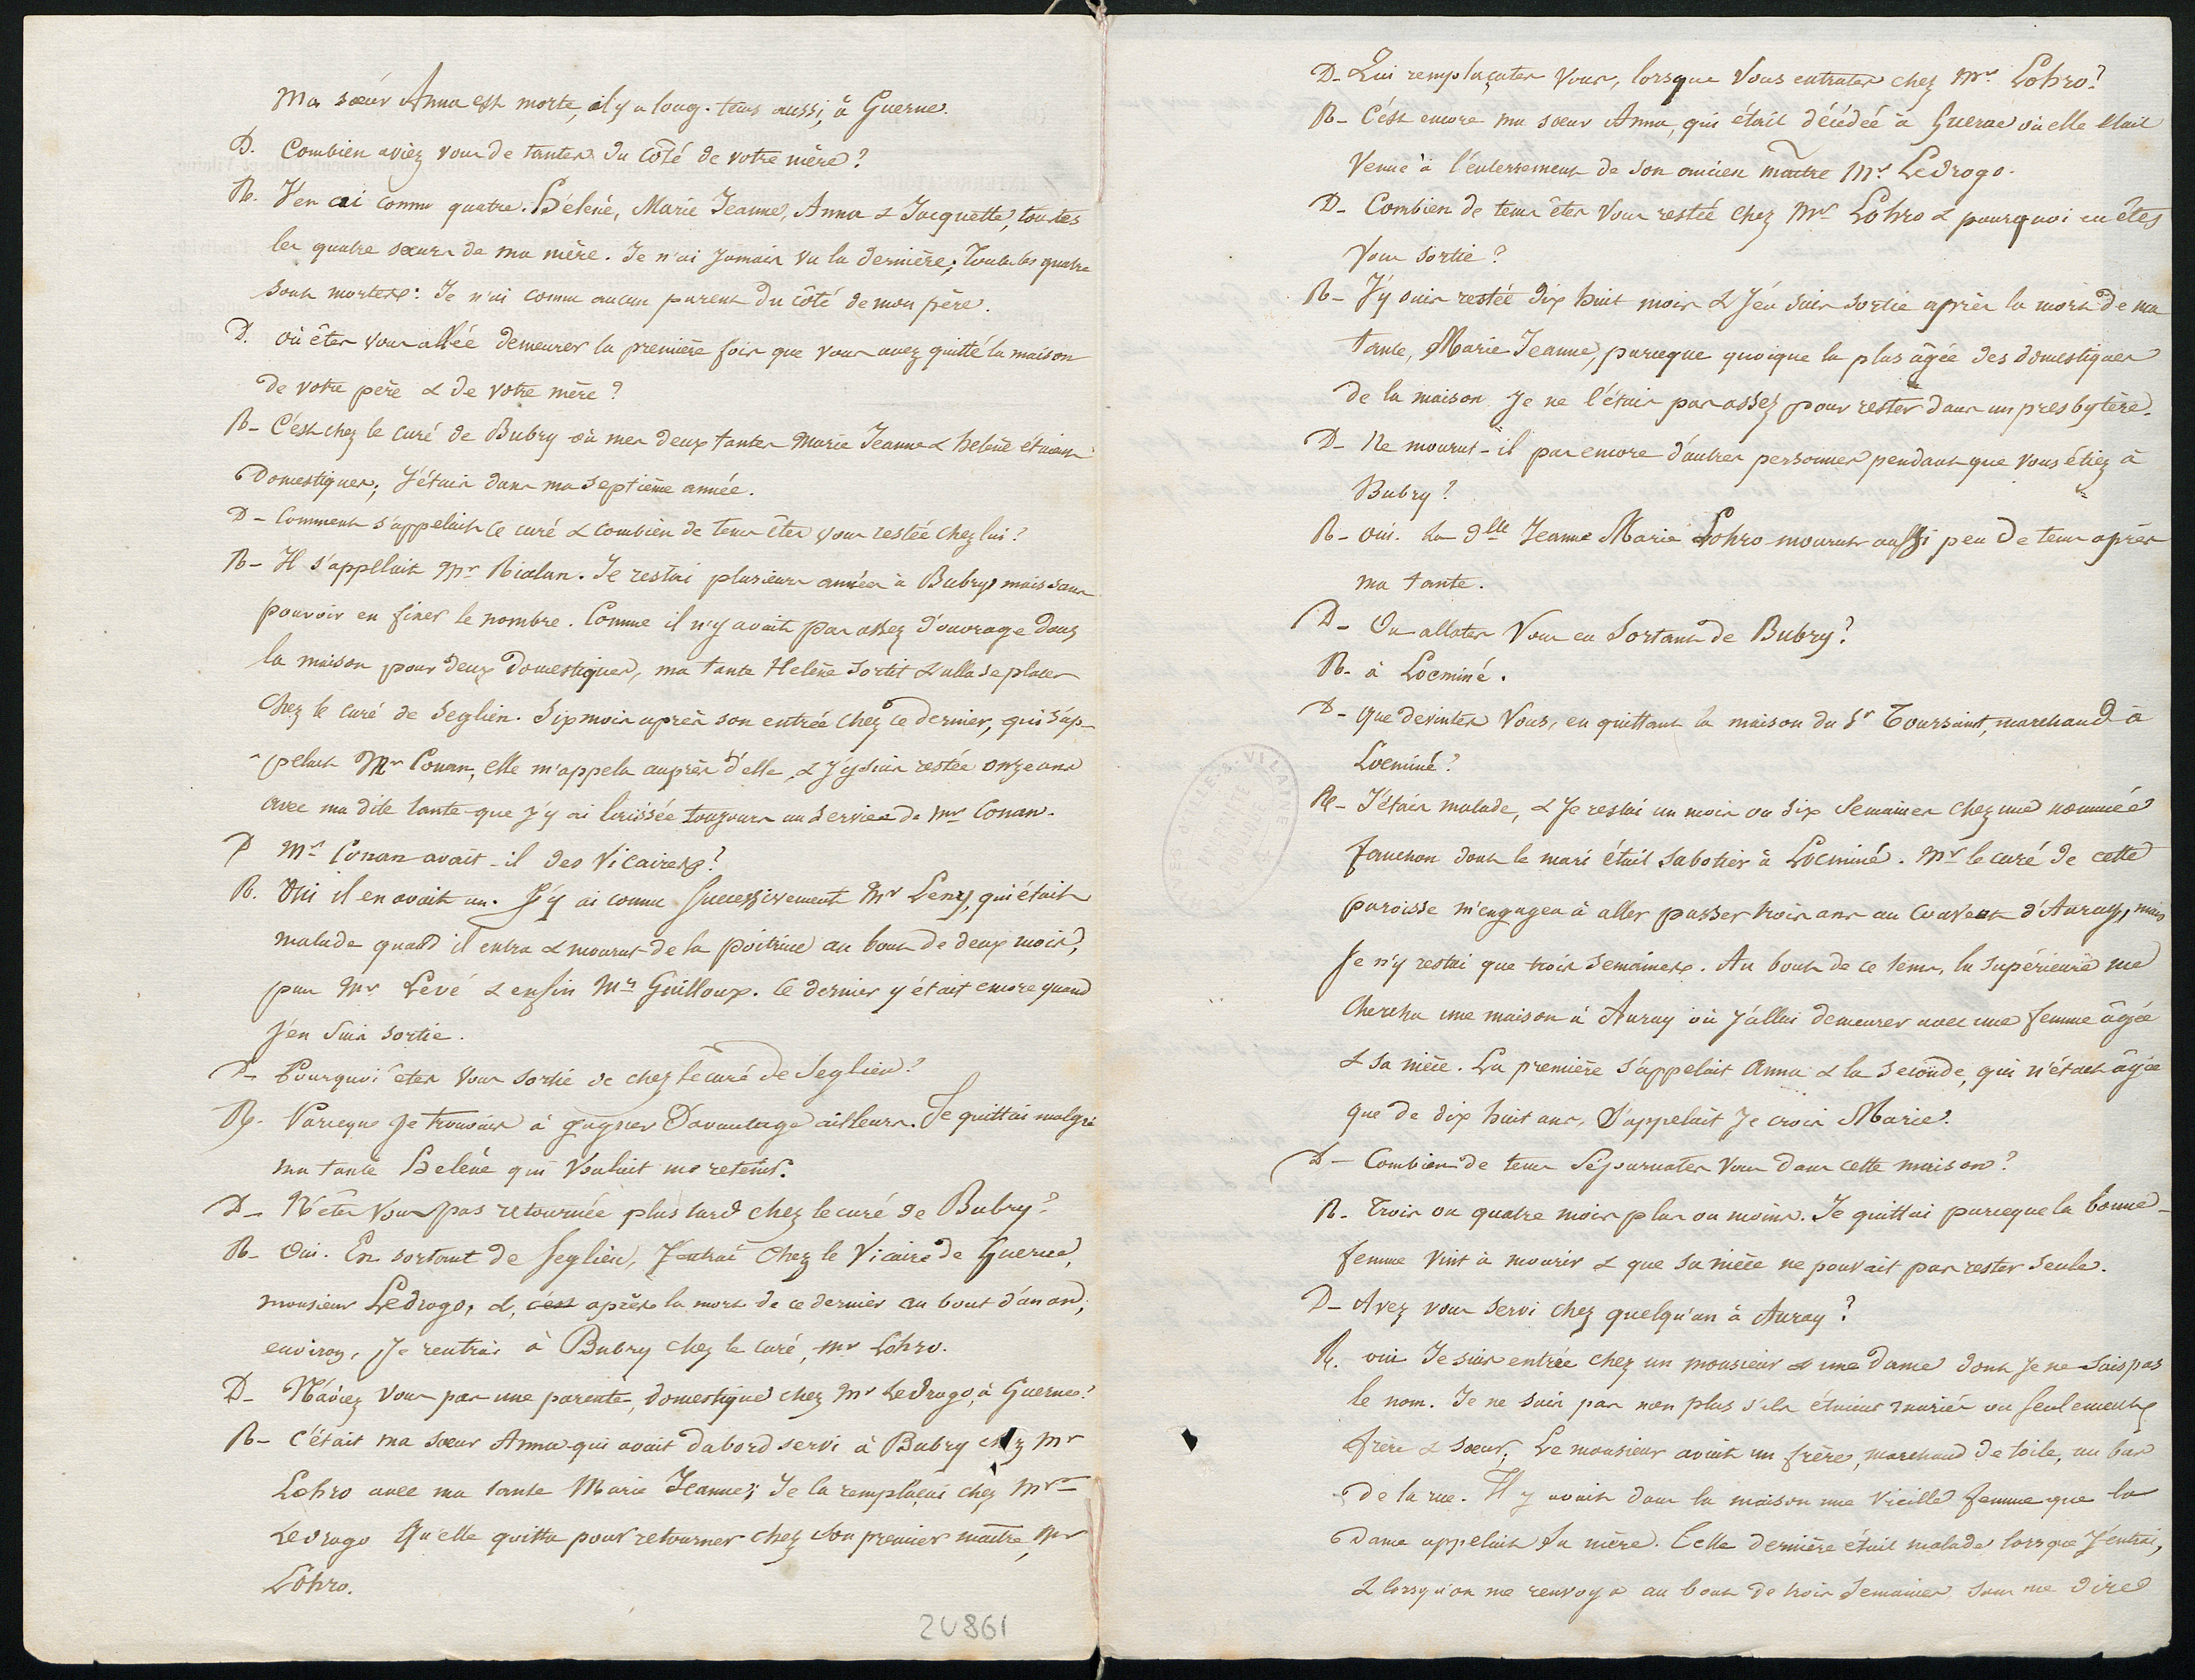 Ma sœur Anna est morte, il y a long-tems aussi, à Guerne.
D. Combien aviez vous de tantes du côté de votre mère?
R. J'en ai connu quatre. Hélène, Marie Jeanne, Anna & Jacquette, toutes
les quatre sœurs de ma mère. Je n'ai jamais vu la dernière; toutes les quatre
sont mortes: Je n'ai connu aucun parent du côté de mon père.
D. où êtes vous allée demeurer la première fois que vous avez quitté la maison
de votre père & de votre mère?
R- C'est chez le curé de Bubry où mes deux tantes Marie Jeanne & helène étaient
Domestiques; J'étais dans ma septième année.
D- Comment s'appelait ce curé & combien de tems êtes vous restée chez lui?
R- Il s'appelait Mr Rialan. Je restai plusieurs années à Bubry, mais sans
pouvoir en fixer le nombre. Comme il n'y avait pas assez d'ouvrage dans
la maison pour deux domestiques, ma tante Helène sortit & alla se placer
Chez le curé de Seglien. Six mois après son entrée chez ce dernier, qui s'ap-
-pelait Mr Conan, elle m'appela auprès d'elle, & j'y suis restée onze ans
avec ma dite tante que j'y ai laissée toujours au service de Mr Conan.
D Mr Conan avait-il des Vicaires?
R. Oui il en avait un. J'y ai connu successivement Mr Leny, qui était
malade quand il entra & mourut de la poitrine au bout de deux mois,
puis Mr Levé & enfin Mr Guilloux. Ce dernier y était encore quand
j'en suis sortie.
D- Pourquoi êtes vous sortie de chez le curé de Seglien?
R. Parceque je trouvais à gagner Davantage ailleurs. Je quittai malgré
ma tante Helène qui voulait me retenir.
D- N'êtes vous pas retournée plus tard chez le curé de Bubry?
R- Oui. En sortant de Seglien, J'entrai chez le Vicaire de Guerne,
monsieur Ledrogo, &, c'est après la mort de ce dernier au bout d'un an,
environ, je rentrai à Bubry chez le curé, Mr Lohro.
D- N'aviez vous pas une parente, domestique chez Mr Ledrogo, à Guerne?
R- C'était ma sœur Anna qui avait dabord servi à Bubry chez Mr
Lohro avec ma tante Marie Jeanne; Je la remplaçai chez Mr
Ledrogo qu'elle quitta pour retourner chez son premier maître, Mr
Lohro.
20861
D- Qui remplaçates vous, lorsque vous entrates chez Mr Lohro?
R- C'est encore ma sœur Anna, qui était décédée à Guerne où elle était
Venue à l'enterrement de son ancien maître Mr Ledrogo.
D- Combien de tems êtes vous restée chez Mr Lohro & pourquoi en êtes
vous sortie?
R- J'y suis restée dix huit mois & J'en suis sortie après la mort de ma
tante, Marie Jeanne, parceque quoique la plus âgée des domestiques
de la maison je ne l'étais pas assez pour rester dans un presbytère.
D- Ne mourut-il pas encore d'autres personnes pendant que vous étiez à
Bubry?
R- Oui. La Dlle Jeanne Marie Lohro mourut aussi peu de tems après
ma tante.
D- Ou allates Vous en sortant de Bubry?
R- à Locminé.
D- que devintes Vous, en quittant la maison du Sr Toursaint, marchand à
Locminé?
R- J'étais malade, & Je restai un mois ou six semaines chez une nommée
fanchon dont le mari était sabotier à Locminé. Mr le curé de cette
paroisse m'engagea à aller passer trois ans au couvent d'Auray, mais
Je n'y restai que trois semaines. Au bout de ce tems, la supérieure me
Chercha une maison à Auray où j'allai demeurer avec une femme âgée
& sa nièce. La première s'appelait Anna & la seconde, qui n'était âgée
que de dix huit ans, s'appelait je crois Marie.
D- Combien de tems séjournates vous dans cette maison?
R- Trois ou quatre mois plus ou moins. Je quittai parceque la bonne-
femme vint à mourir & que sa nièce ne pouvait pas rester seule.
D- Avez vous servi chez quelqu'un à Auray?
R. oui Je suis entrée chez un monsieur & une dame dont je ne sais pas
le nom. Je ne sais pas non plus s'ils étaient mariés ou seulement
frère & sœur; Le monsieur avait un frère, marchand de toile, au bas
de la rue. Il y avait dans la maison une vieille femme que la
Dame appelait sa mère. Cette dernière était malade lorsque j'entrai,
& lorsqu'on me renvoya au bout de trois semaines sans me dire